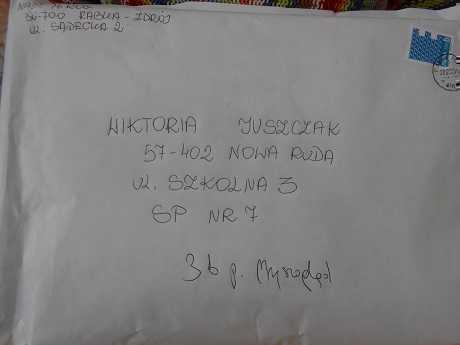 34-700 RABKA - ZDRÓJ
UL. SĄDECKA 2
WIKTORIA JUSZCZAK
57-402 NOWA RUDA
UL. SZKOLNA 3
SP NR 7
3b p.